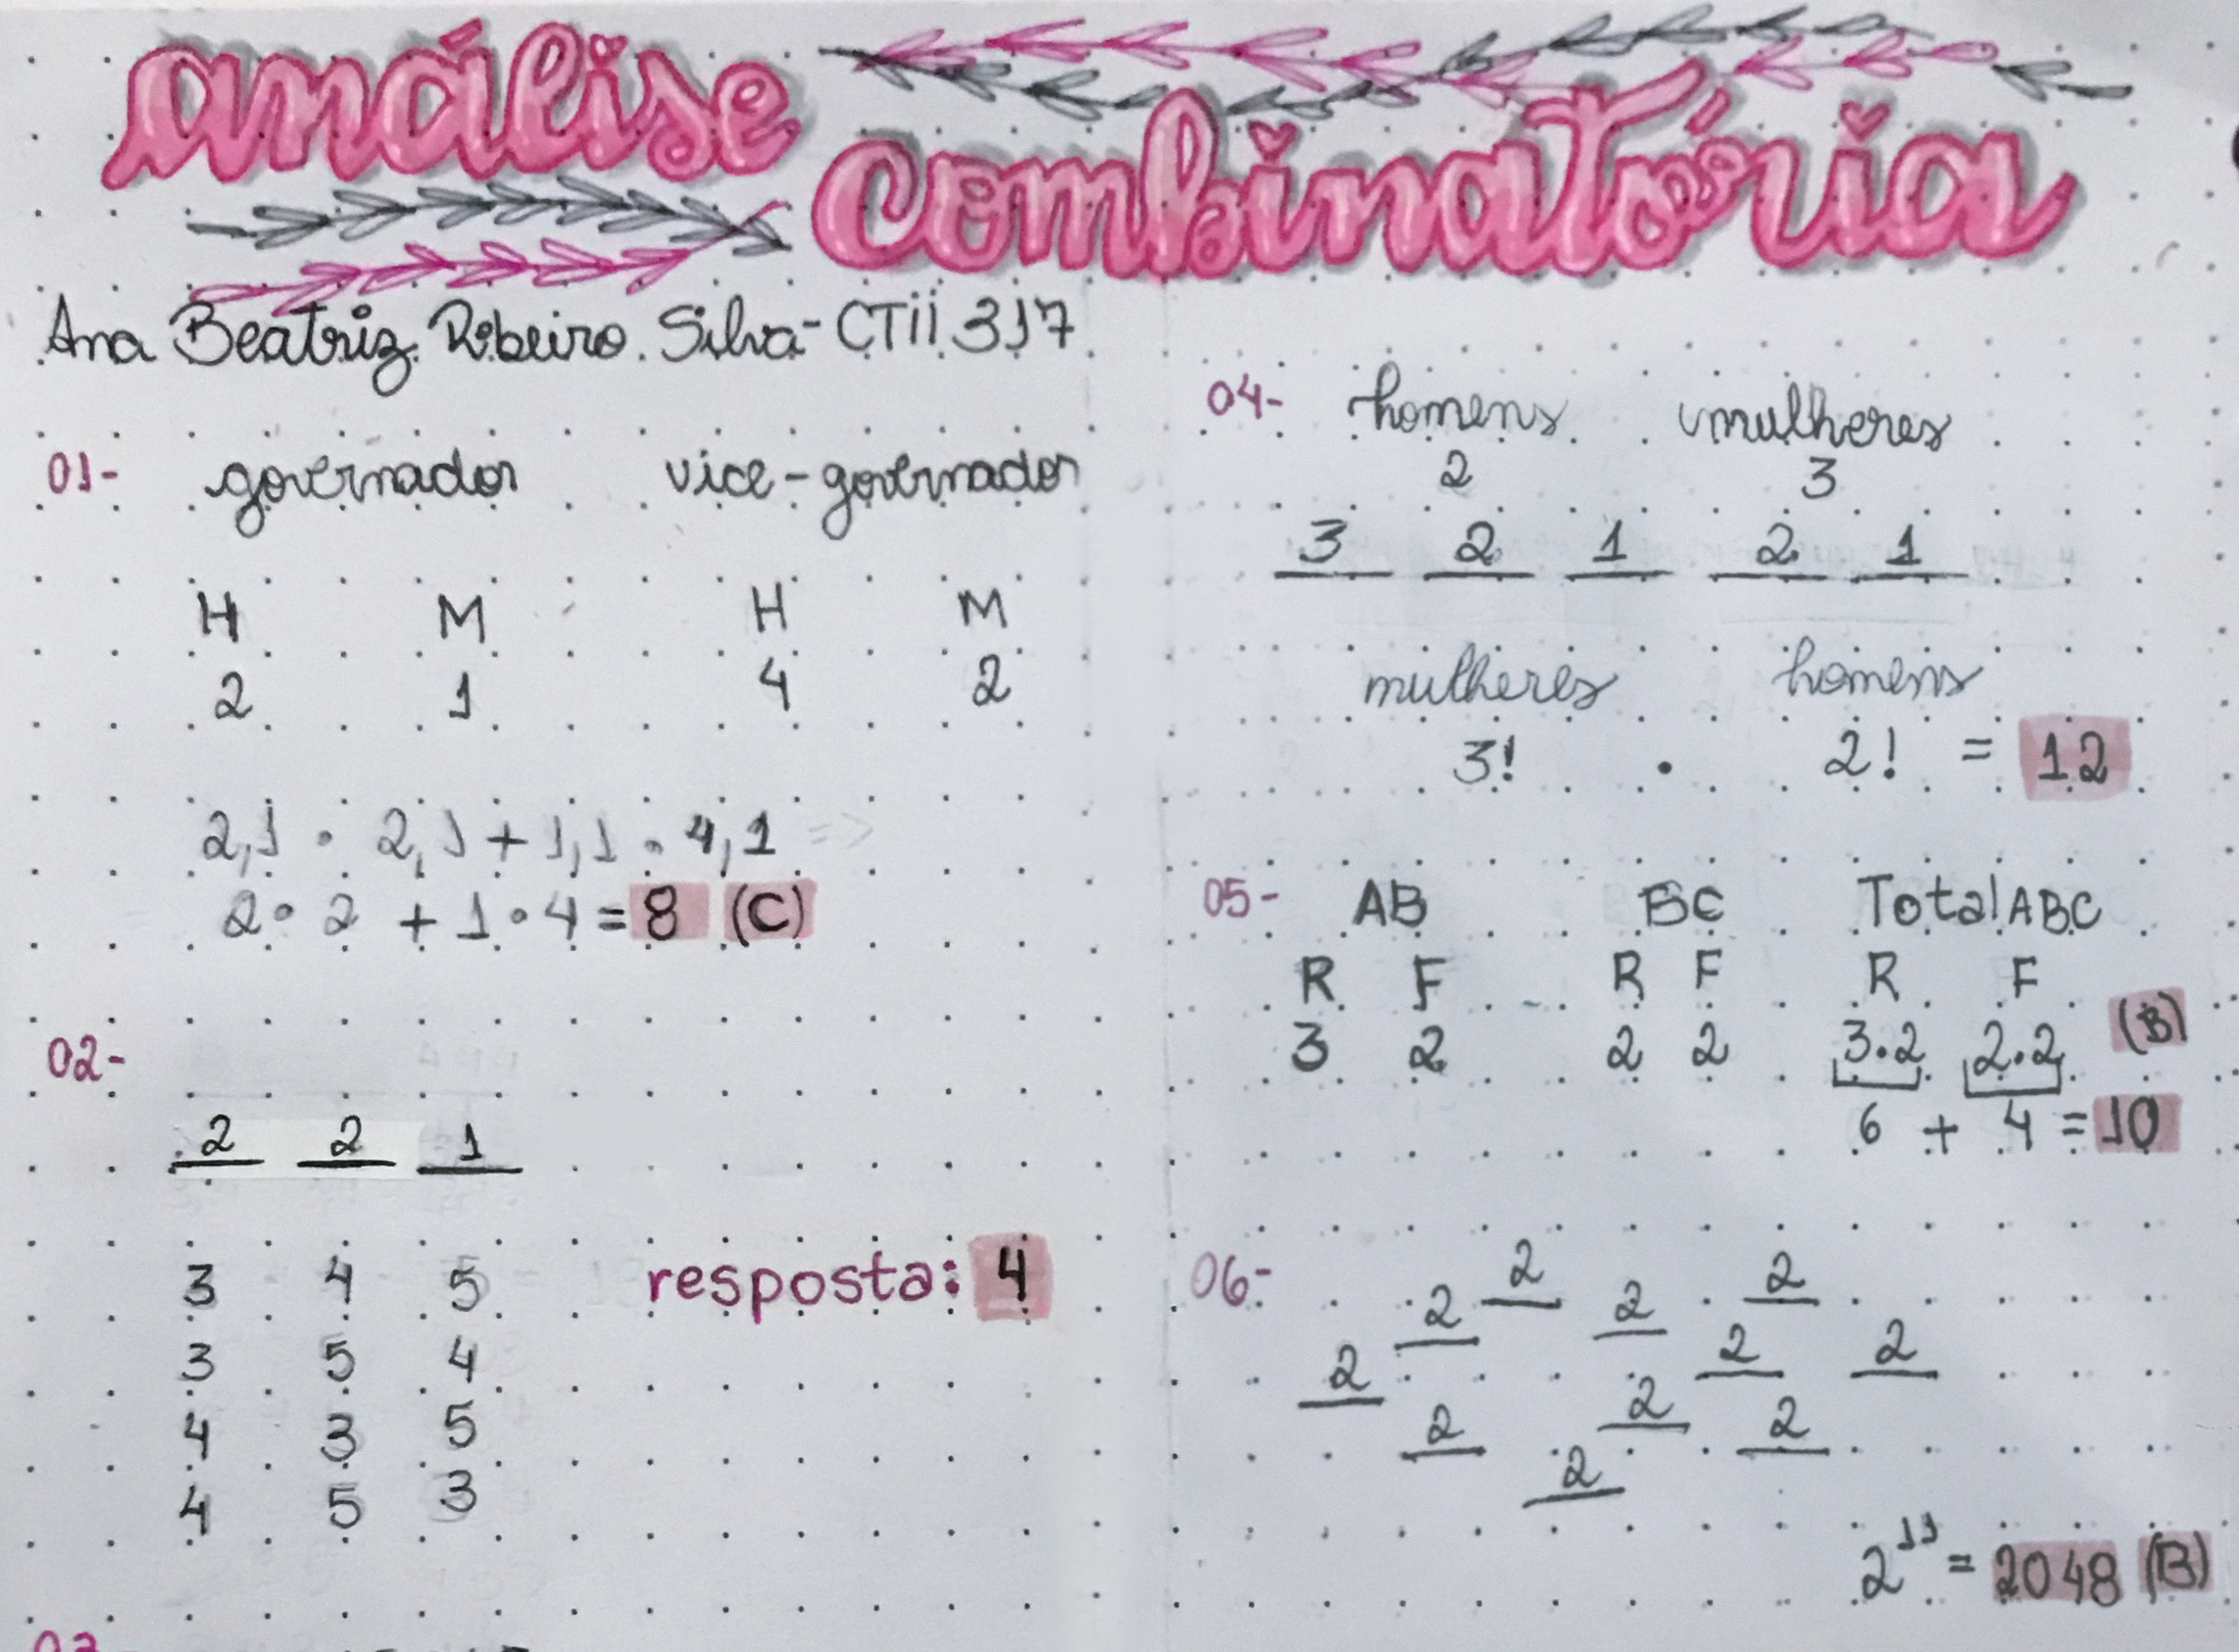 análise
combinatória
Ana Beatriz Ribeiro Silva - CTii 317
01- governador vice-governador
H M H M
2 1 4 2
2,1 · 2,1 + 1,1 · 4,1 =>
2 · 2 + 1 · 4 = 8 (C)
02-
2 2 1
3 4 5
resposta: 4
3 5 4
4 3 5
4 5 3
04- homens mulheres
2 3
3 2 1 2 1
mulheres homens
3! · 2! = 12
05- AB BC Total ABC
R F R F R F
3 2 2 2 3.2 2.2 (B)
6 + 4 = 10
06-
2 2 2 2 2 2 2 2 2 2 2
2¹¹ = 2048 (B)